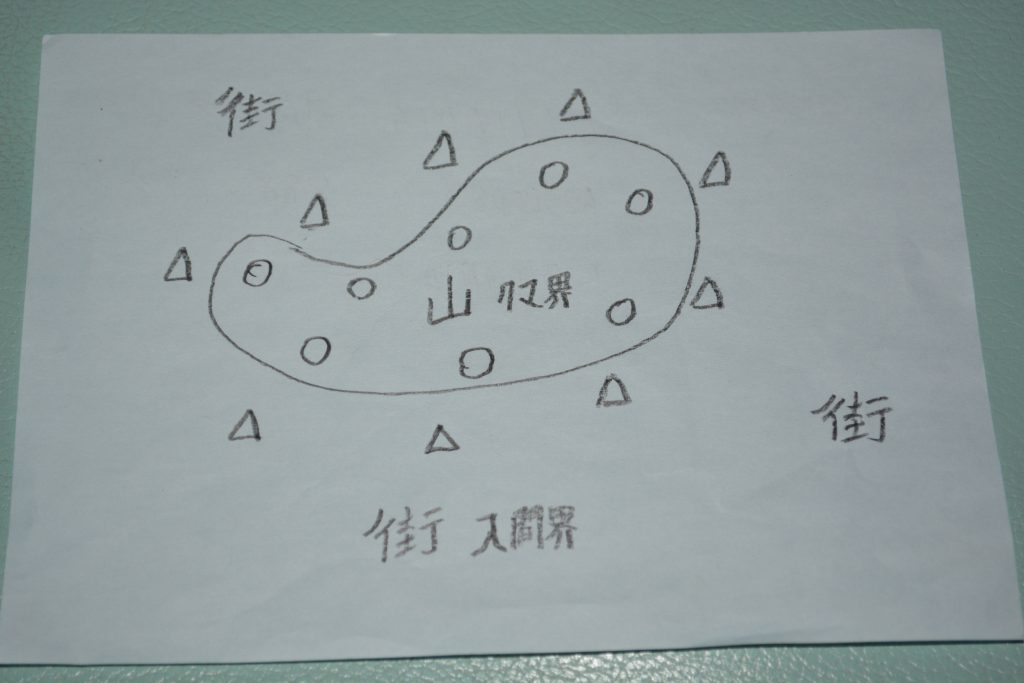 街
山 クマ界
街
街 人間界